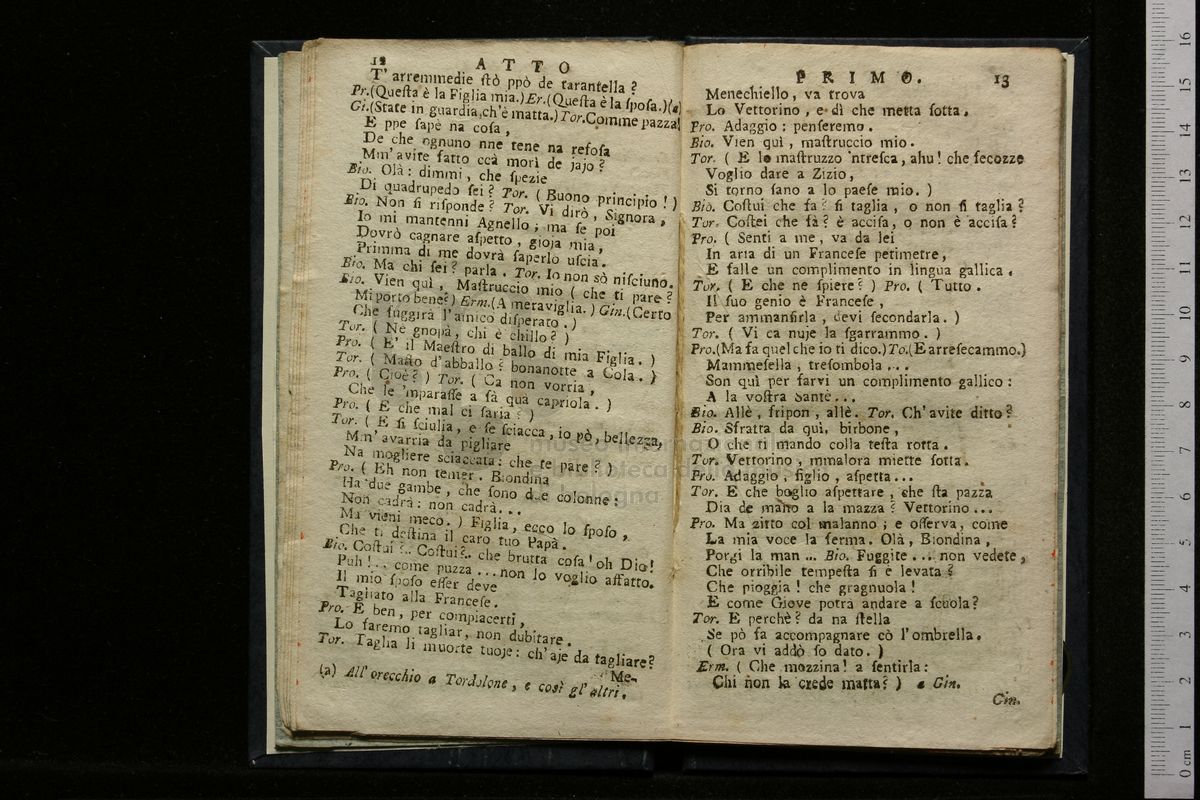 12 ATTO
T' arremmedie ſtò ppò de tarantella?
Pr.(Queſta è la Figlia mia.)Er.(Queſta è la ſpoſa.)(a)
Gi.(State in guardia,ch'è matta.)Tor.Comme pazza!
E ppe ſapè na coſa,
De che ognuno nne tene na refoſa
Mm'avite fatto ccà morì de jajo?
Bio. Olà: dimmi, che ſpezie
Di quadrupedo ſei? Tor. (Buono principio!)
Bio. Non ſi riſponde? Tor. Vi dirò, Signora,
Io mi mantenni Agnello; ma ſe poi
Dovrò cagnare aſpetto, gioja mia,
Primma di me dovrà ſaperlo uſcia.
Bio. Ma chi ſei? parla. Tor. Io non sò niſciuno.
Bio. Vien quì, Maſtruccio mio (che ti pare?
Mi porto bene?) Erm.(A meraviglia.) Gin.(Certo
Che fuggirà l'amico diſperato.)
Tor. (Nè gnopà, chi è chillo?)
Pro. (E' il Maeſtro di ballo di mia Figlia.)
Tor. (Maſto d'abballo? bonanotte a Cola.)
Pro. (Cioè?) Tor. (Ca non vorria,
Che le 'mparaſſe a fà qua capriola.)
Pro. (E che mal ci ſaria?)
Tor. (E ſi ſciulia, e ſe ſciacca, io pò, bellezza,
Mm'avarria da pigliare
Na mogliere sciaccata: che te pare?)
Pro. (Eh non temer. Biondina
Ha due gambe, che ſono due colonne:
Non cadrà: non cadrà...
Ma vieni meco.) Figlia, ecco lo ſpoſo,
Che ti deſtina il caro tuo Papà.
Bio. Coſtui?.. Coſtui?.. che brutta coſa! oh Dio!
Puh!.. come puzza... non lo voglio affatto.
Il mio ſpoſo eſſer deve
Tagliato alla Franceſe.
Pro. E ben, per compiacerti,
Lo faremo tagliar, non dubitare.
Tor. Taglia li muorte tuoje: ch'aje da tagliare?
Me-
(a) All'orecchio a Tordolone, e così gl'altri.
PRIMO. 13
Menechiello, va trova
Lo Vettorino, e dì che metta ſotta.
Pro. Adaggio: penſeremo.
Bio. Vien quì, maſtruccio mio.
Tor. (E lo maſtruzzo 'ntreſca, ahu! che ſecozze
Voglio dare a Zizio,
Si torno ſano a lo paeſe mio.)
Bio. Coſtui che fa? ſi taglia, o non ſi taglia?
Tor. Coſtei che fà? è acciſa, o non è acciſa?
Pro. (Senti a me, va da lei
In aria di un Franceſe petimetre,
E falle un complimento in lingua gallica.
Tor. (E che ne ſpiere?) Pro. (Tutto.
Il ſuo genio è Franceſe,
Per ammanſirla, devi ſecondarla.)
Tor. (Vi ca nuje la ſgarrammo.)
Pro.(Ma fa quel che io ti dico.)To.(E arreſecammo.)
Mammeſella, treſombola...
Son quì per farvi un complimento gallico:
A la voſtra Santè...
Bio. Allè, fripon, allè. Tor. Ch'avite ditto?
Bio. Sfratta da quì, birbone,
O che ti mando colla teſta rotta.
Tor. Vettorino, mmalora miette ſotta.
Pro. Adaggio, figlio, aſpetta...
Tor. E che boglio aſpettare, che ſta pazza
Dia de mano a la mazza? Vettorino...
Pro. Ma zitto col malanno; e oſſerva, come
La mia voce la ferma. Olà, Biondina,
Porgi la man... Bio. Fuggite... non vedete,
Che orribile tempeſta ſi è levata?
Che pioggia! che gragnuola!
E come Giove potrà andare a ſcuola?
Tor. E perchè? da na ſtella
Se pò fa accompagnare cò l'ombrella.
(Ora vi addò ſo dato.)
Erm. (Che mozzina! a ſentirla:
Chi non la crede matta?) a Gin.
Gin.